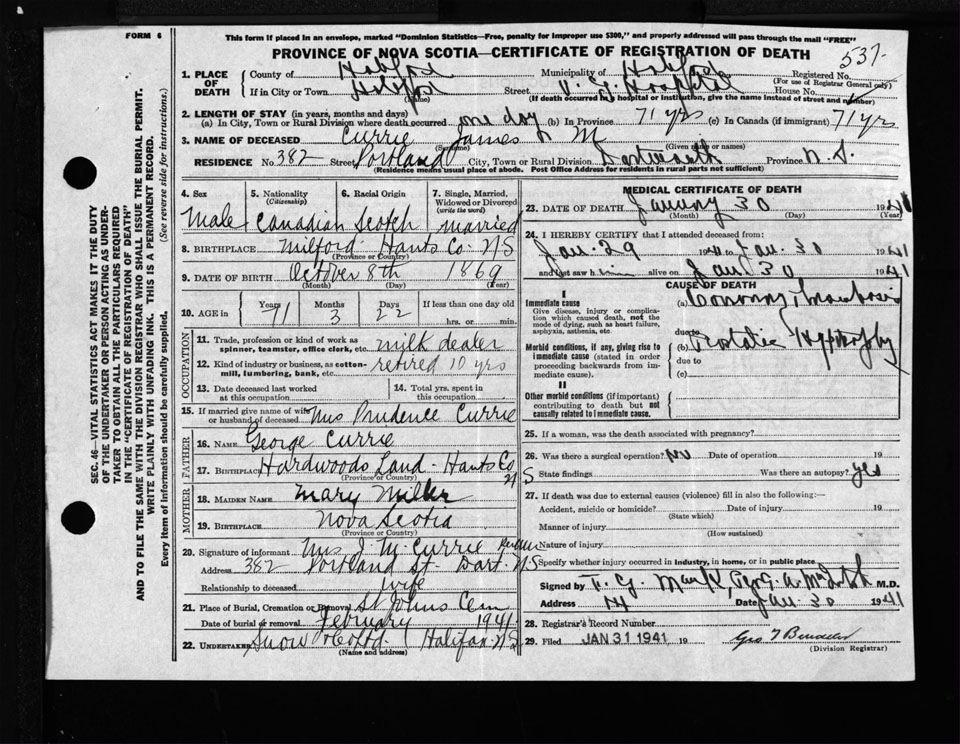 FORM 6
This form if placed in an envelope, marked "Dominion Statistics—Free, penalty for improper use $300," and properly addressed will pass through the mail "FREE"
PROVINCE OF NOVA SCOTIA—CERTIFICATE OF REGISTRATION OF DEATH
537
1. PLACE OF DEATH
County of Halifax Municipality of Halifax Registered No.
(For use of Registrar General only)
If in City or Town Halifax Street V. G. Hospital House No.
(Name) (If death occurred in hospital or institution, give the name instead of street and number)
2. LENGTH OF STAY (in years, months and days)
(a) In City, Town or Rural Division where death occurred one day (b) In Province 71 yrs (c) In Canada (if immigrant) 71 yrs
3. NAME OF DECEASED Currie James M
(Surname) (Given name or names)
RESIDENCE No. 382 Street Portland City, Town or Rural Division Dartmouth Province N. S.
(Residence means usual place of abode. Post Office Address for residents in rural parts not sufficient)
4. Sex
Male
5. Nationality (Citizenship)
Canadian
6. Racial Origin
Scotch
7. Single, Married, Widowed or Divorced (write the word)
married
8. BIRTHPLACE Milford Hants Co. N S
(Province or Country)
9. DATE OF BIRTH October 8th 1869
(Month) (Day) (Year)
10. AGE in Years 71 Months 3 Days 22 If less than one day old
hrs. or min.
OCCUPATION
11. Trade, profession or kind of work as spinner, teamster, office clerk, etc. milk dealer
12. Kind of industry or business, as cotton-mill, lumbering, bank, etc. retired 10 yrs
13. Date deceased last worked at this occupation
14. Total yrs. spent in this occupation
15. If married give name of wife or husband of deceased Mrs Prudence Currie
FATHER
16. NAME George Currie
17. BIRTHPLACE Hardwoods Land - Hants Co N S
(Province or Country)
MOTHER
18. MAIDEN NAME Mary Miller
19. BIRTHPLACE Nova Scotia
(Province or Country)
20. Signature of informant Mrs J. M Currie
Address 382 Portland St - Dart. N.S
Relationship to deceased wife
21. Place of Burial, Cremation or Removal St Johns Cem
Date of burial or removal February 1941
22. UNDERTAKER Snow & Co Ltd Halifax N S
(Name and address)
MEDICAL CERTIFICATE OF DEATH
23. DATE OF DEATH January 30 1941
(Month) (Day) (Year)
24. I HEREBY CERTIFY that I attended deceased from:
Jan. 29 1941 to Jan. 30 1941
and last saw him alive on Jan 30 1941
CAUSE OF DEATH
I
Immediate cause
Give disease, injury or complication which caused death, not the mode of dying, such as heart failure, asphyxia, asthenia, etc.
(a) Coronary Thrombosis
due to
Morbid conditions, if any, giving rise to immediate cause (stated in order proceeding backwards from immediate cause).
(b) Prostatic Hypertrophy
due to
(c)
II
Other morbid conditions (if important) contributing to death but not causally related to immediate cause.
25. If a woman, was the death associated with pregnancy?
26. Was there a surgical operation? No Date of operation 19
State findings Was there an autopsy? yes
27. If death was due to external causes (violence) fill in also the following:—
Accident, suicide or homicide? Date of injury 19
(State which)
Manner of injury
(How sustained)
Nature of injury
Specify whether injury occurred in industry, in home, or in public place
Signed by M.D.
Address Date Jan. 30 1941
28. Registrar's Record Number
29. Filed JAN 31 1941 19
(Division Registrar)
SEC. 46—VITAL STATISTICS ACT MAKES IT THE DUTY
OF THE UNDERTAKER OR PERSON ACTING AS UNDER-
TAKER TO OBTAIN ALL THE PARTICULARS REQUIRED
IN THE "CERTIFICATE OF REGISTRATION OF DEATH"
AND TO FILE THE SAME WITH THE DIVISION REGISTRAR WHO SHALL ISSUE THE BURIAL PERMIT.
WRITE PLAINLY WITH UNFADING INK. THIS IS A PERMANENT RECORD.
Every item of Information should be carefully supplied. (See reverse side for instructions.)